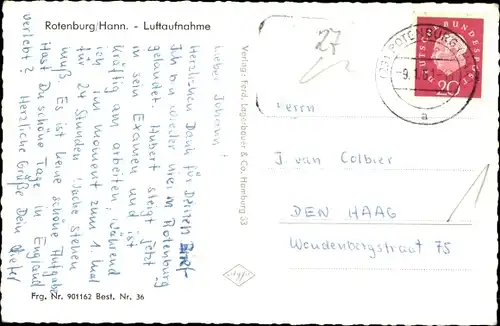 Rotenburg/Hann. - Luftaufnahme
Lieber Johann!
Herzlichen Dank für Deinen Brief.
Ich bin wieder hier in Rotenburg
gelandet. Hubert steigt jetzt
in sein Examen und ist
kräftig am arbeiten, während
ich im moment zum 1. mal
für 24 Stunden Wache stehen
muß. Es ist keine schöne Aufgabe
Hast Du schöne Tage in England
verlebt? Herzliche Grüße Dein
Frg. Nr. 901162 Best. Nr. 36
Verlag: Ferd. Lagerbauer & Co. Hamburg 33
27
ROTENBURG
a
DEUTSCHE BUNDESPOST
20
Herrn
J van Colbier
DEN HAAG
Woudenbergstraat 75
1